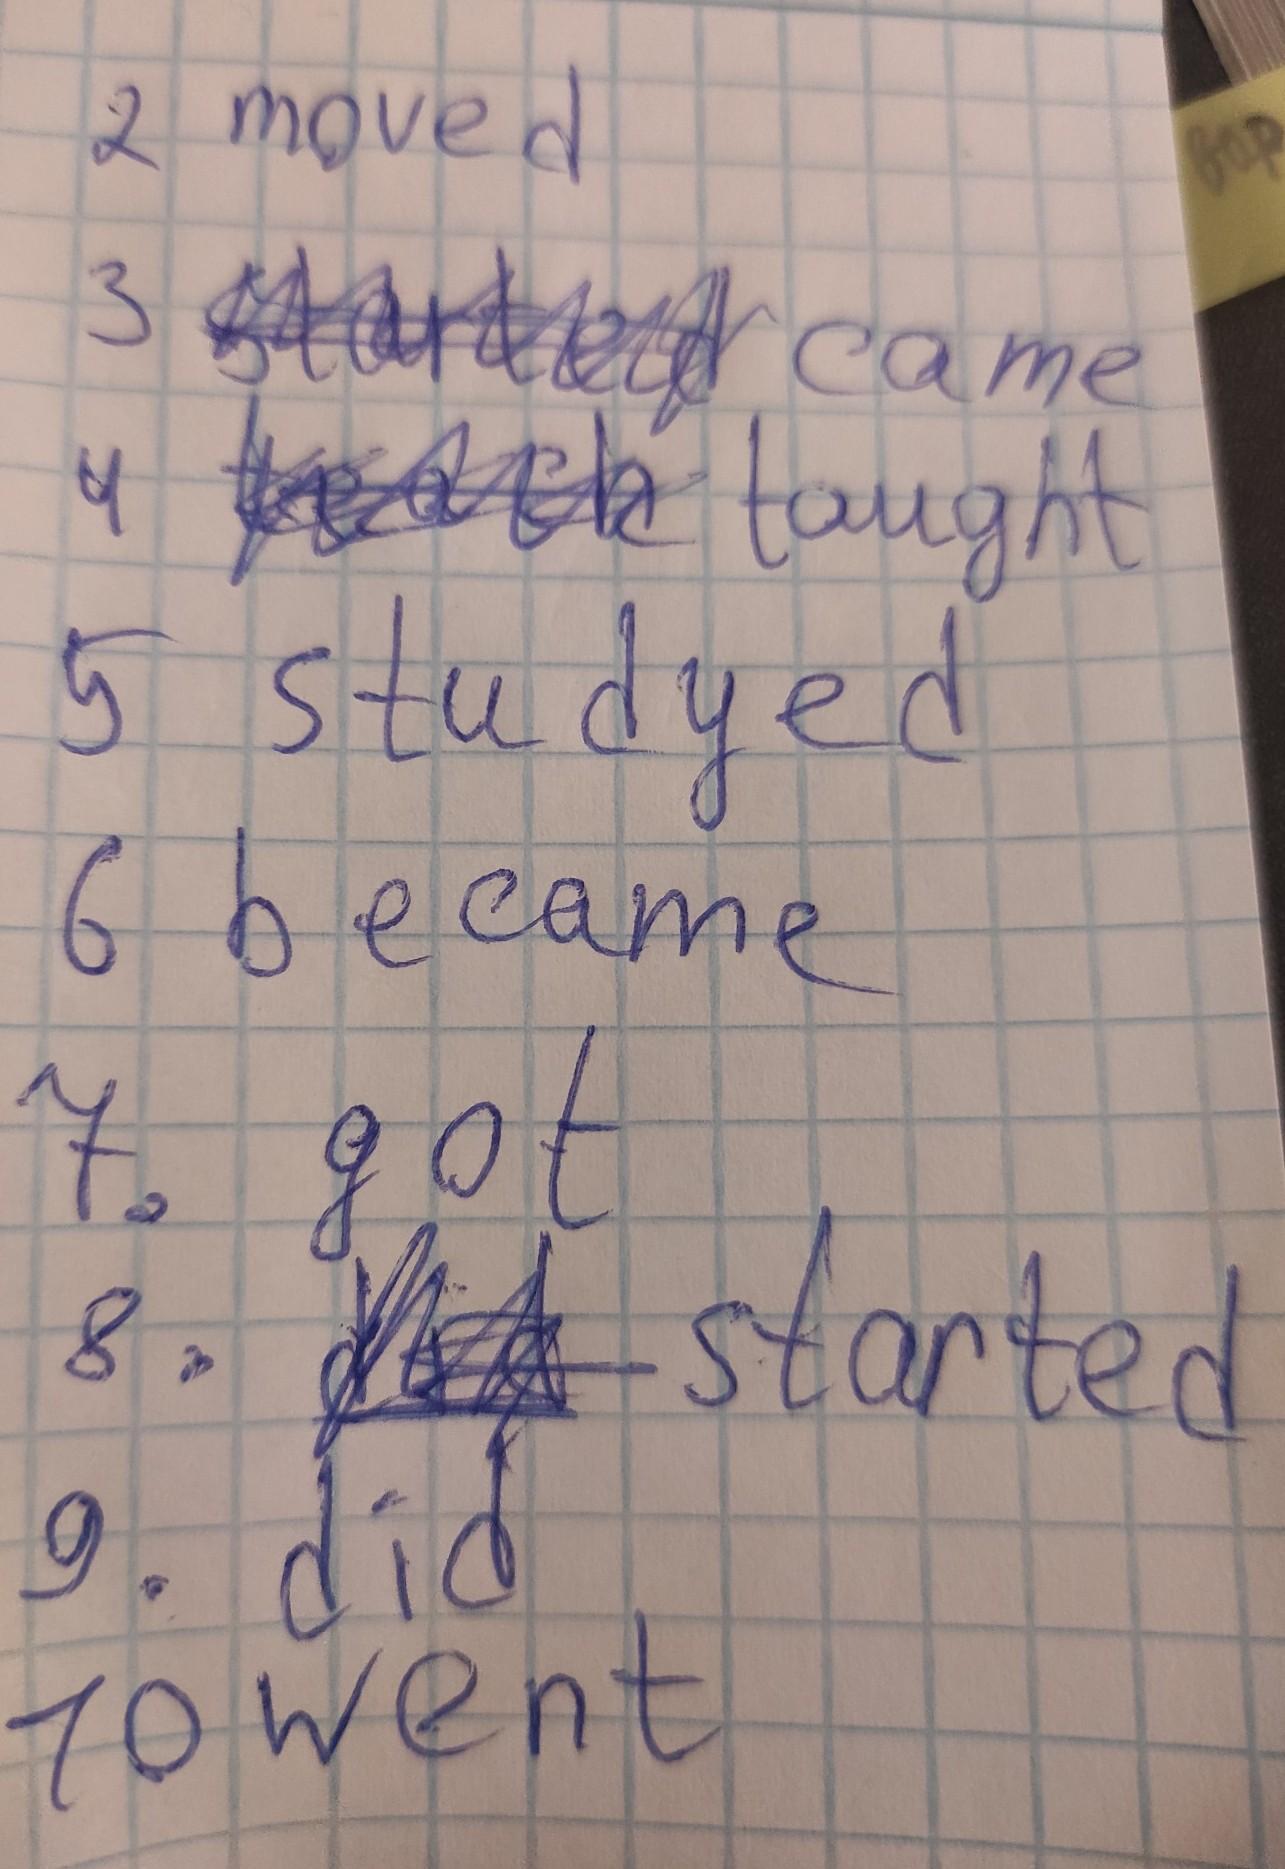 2 moved
вар
3 started came
4 teach taught
5 studyed
6 became
7. got
8. did started
9. did
10 went